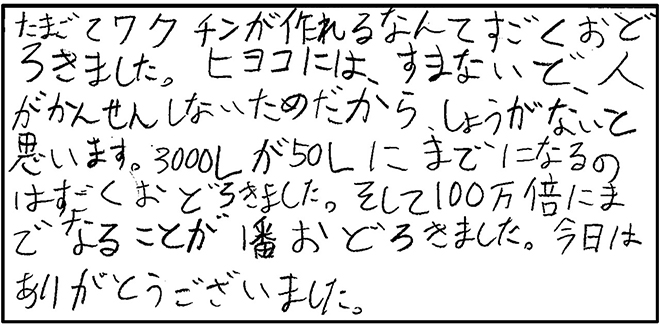 たまごでワクチンが作れるなんてすごくおど
ろきました。ヒヨコには、すまないで、人
がかんせんしないためだから、しょうがないと
思います。3000Lが50Lにまでになるの
はすごくおどろきました。そして100万倍にま
でなることが1番おどろきました。今日は
ありがとうございました。